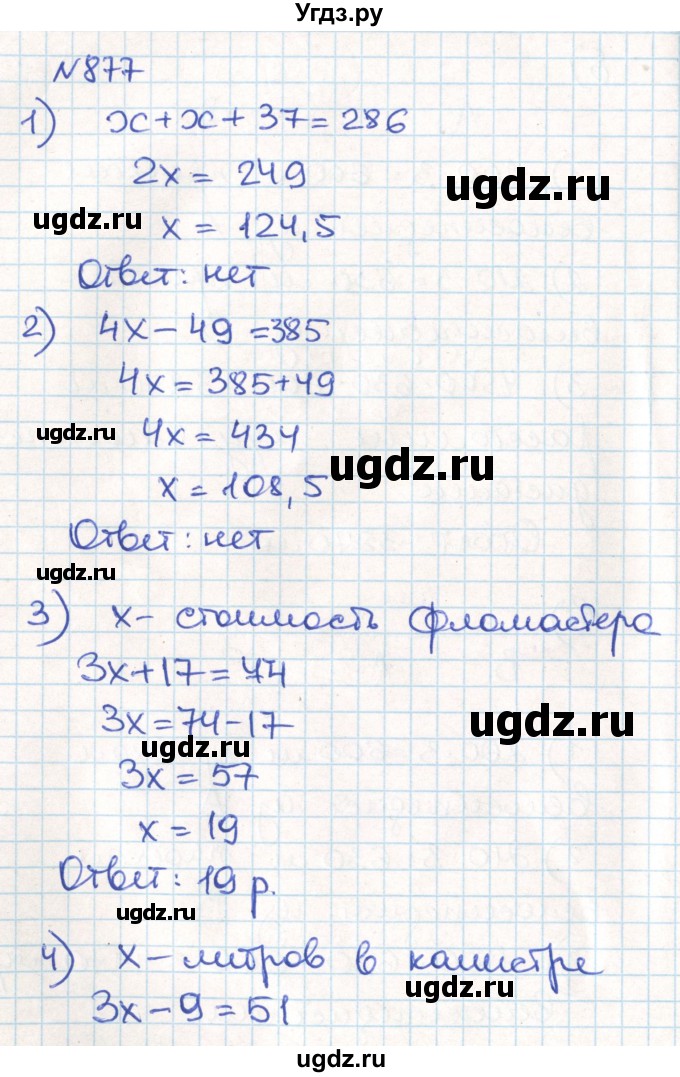 Угдз.ру
№877
1) x + x + 37 = 286
2x = 249
ugdz.ru
ugdz.ru
x = 124,5
Ответ: нет
2) 4x - 49 = 385
4x = 385 + 49
ugdz.ru
4x = 434
ugdz.ru
x = 108,5
Ответ: нет
ugdz.ru
3) x - стоимость фломастера
3x + 17 = 74
3x = 74 - 17
ugdz.ru
ugdz.ru
3x = 57
x = 19
Ответ: 19 р.
ugdz.ru
4) x - литров в канистре
ugdz.ru
3x - 9 = 51
ugdz.ru